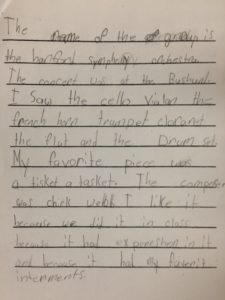 The name of the group is
the hartford symphony orchestra.
The concert was at the Bushnell.
I Saw the cello violan the
french horn trumpet claranet
the flut and the Drum set.
My favorite piece was
a tisket a tasket. The composer
was chick webb I like it
because we did it in class
because it had exponeshon in it
and because it had my favorit
intenments.